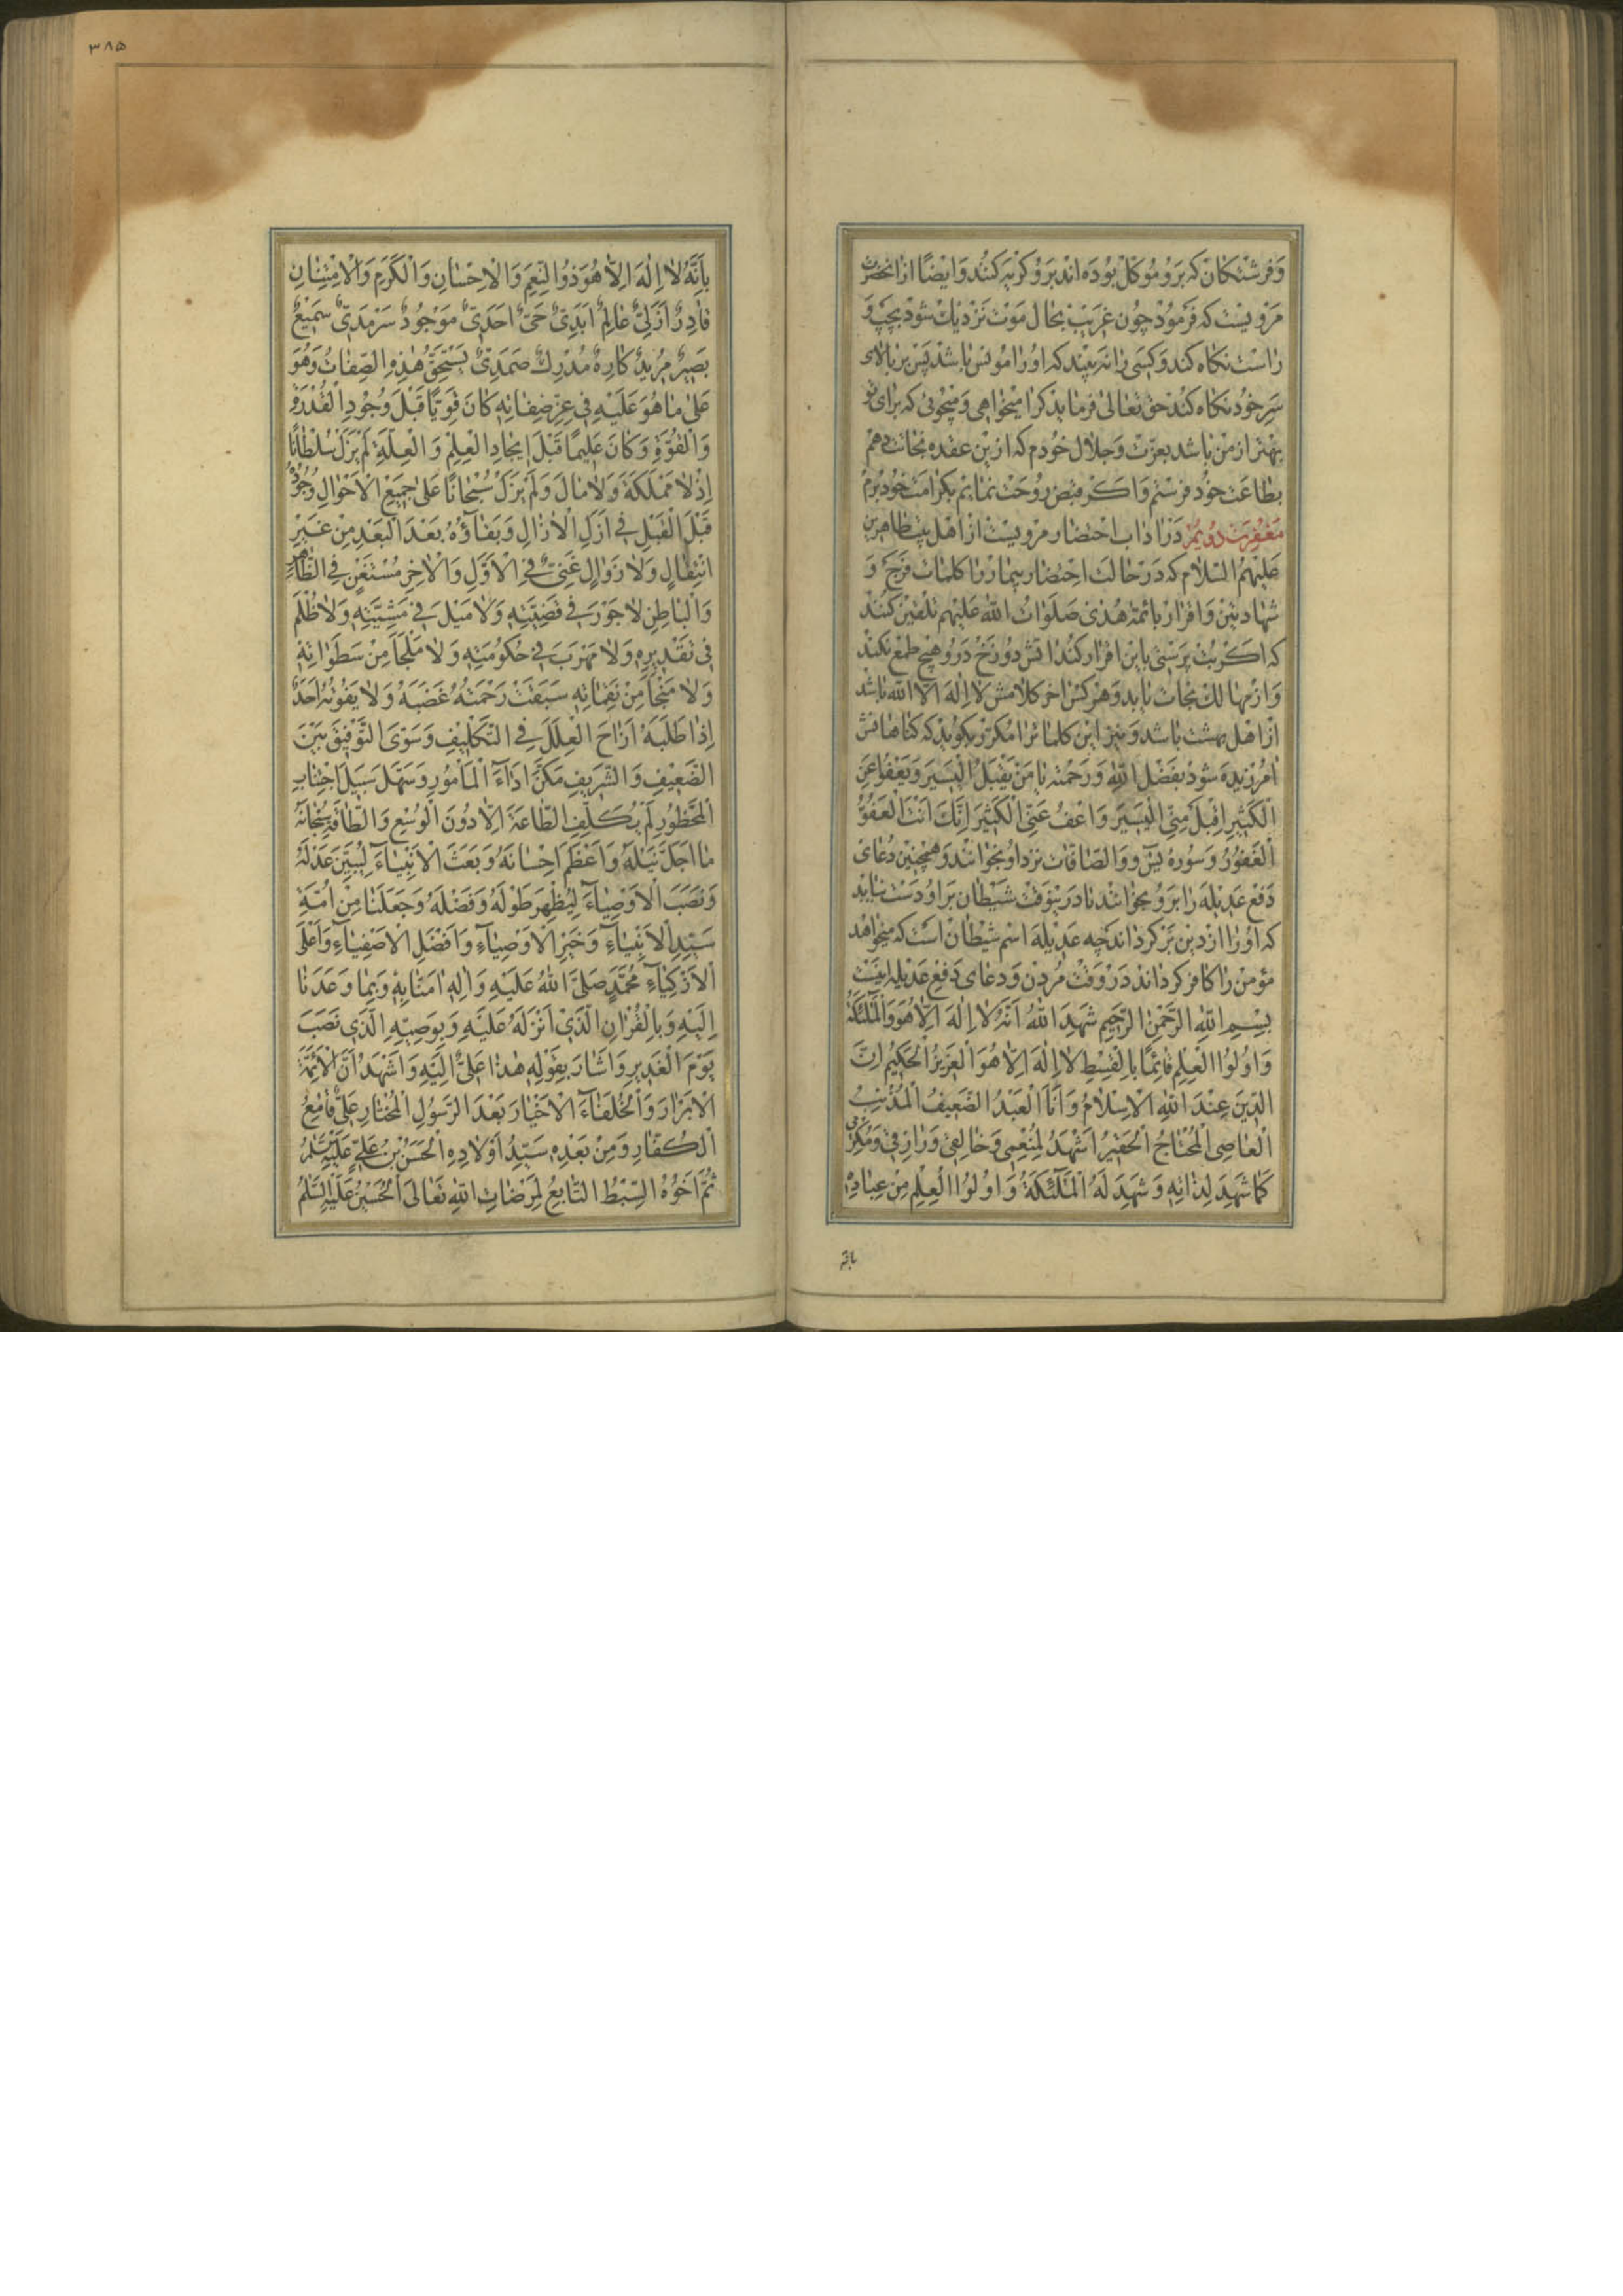 وَفرشتکان که بَرو مُوکل بوُدَه اند بَرو کَریَه کنُند وَایضًا ازانحضرت
مرویست که فَرمُود چوُن غَریَبْ بحٰال موَت نَزدیك شَود بچَپ وَ
رٰاست نکاه کند وَکسَی رٰا نه بیَند که اوُ رٰا مُونس بٰاشد پَس بر بٰالٰای
سَرِ خوُد نکاه کنُد حق تعٰالیٰ فرمٰاید کرا میخوٰاهی وَ میجوئی که برٰای تو
بهتر از من بٰاشد بعزّت وَجلٰال خوُدم که از ین عقده نجٰات دهم
بطٰاعت خوُد فرستم وَاکر قبض روُحت نمٰایم بکرامت خوُد بَرم
مَغفِرَت دوُیُم دَر اٰدٰاب احتضٰار مرویست از اهل بیت طٰاهرین
عَلَیهمُ السّلٰام که دَر حٰالت احتضٰار بیمٰار رٰا کلمٰات فرَج وَ
شهٰادتین وَاقرار بائمّه هُدیٰ صَلوَاتُ اللهِ عَلَیهم تلقین کنند
که اکر بُت پرَستی باین اقرار کنُد اتش دوُزَخ دَر وُ هیچ طمَع نکند
وَ از مهٰالك نجٰات یٰابد وَ هر کس اخر کلٰامش لٰا اِلٰهَ اِلّا الله بٰاشد
از اهل بهشت بٰاشد وَ نیز این کلمٰات رٰا مکرّر بکوُید که کنٰاهٰانش
امُرزیده شوَد بفَضل اللهِ وَرَحمته یٰا مَنْ یَقْبَلُ الْیَسیَر وَیَعْفوُا عَنِ
الْکَثیٖرِ اِقْبَلْ مِنّیِ الْیَسیٖرَ وَاعْفُ عَنّیِ الْکَثیٖرَ اِنَّكَ اَنْتَ الْعَفُوُّ
الْغَفوُرُ وَ سوُره یٰسٓ وَ وَالصّافّات نزد اوُ بخوٰانند وَ همچنین دُعٰای
دَفع عَدیله رٰا بَرو بخوٰانند تٰا در ینوَقت شَیطٰان بر او دَست نیٰابد
که اوُ رٰا از دین بَر کردٰاند چه عَدیله اسم شیطٰان است که میخوٰاهد
مؤمن رٰا کٰافر کردٰاند دَر وَقت مُردن وَ دعٰای دَفع عَدیله اینست
بِسْمِ اللهِ الرَّحْمٰنِ الرَّحیٖمِ شَهِدَ اللهُ اَنَّهُ لٰا اِلٰهَ اِلّٰا هُوَ وَالْمَلٰٓئِکَةُ
وَ اوُلوُا الْعِلْمِ قٰائِمًا بِالْقِسْطِ لٰا اِلٰهَ اِلّٰا هُوَ الْعَزیٖزُ الْحَکیٖمُ اِنَّ
الدّیٖنَ عِنْدَ اللهِ الْاِسْلٰامُ وَ اَنَا الْعَبْدُ الضَّعیٖفُ الْمُذْنِبُ
الْعٰاصِی الْمُحْتٰاجُ الْحَقیٖرُ اَشْهَدُ لِمُنْعِمیٖ وَ خٰالِقیٖ وَ رٰازِقیٖ وَ مُکْرِمیٖ
کَمٰا شَهِدَ لِذٰاتِهٖ وَ شَهِدَ لَهُ الْمَلٰٓئِکَةُ وَ اوُلوُا الْعِلْمِ مِنْ عِبٰادِهٖ
بانّه
٣٨٥
بِاَنَّهُ لٰا اِلٰهَ اِلّٰا هُوَ ذوُ النِّعَمِ وَ الْاِحْسٰانِ وَ الْکَرَمِ وَ الْاِمْتِنٰانِ
قٰادِرٌ اَزَلِیٌّ عٰالِمٌ اَبَدِیٌّ حَیٌّ اَحَدِیٌّ مَوْجوُدٌ سَرْمَدِیٌّ سَمیٖعٌ
بَصیٖرٌ مُریٖدٌ کٰارِهٌ مُدْرِكٌ صَمَدِیٌّ یَسْتَحِقُّ هٰذِهِ الصِّفٰاتُ وَ هُوَ
عَلیٰ مٰا هُوَ عَلَیْهِ فیٖ عِزِّ صِفٰاتِهٖ کٰانَ قَوِیًّا قَبْلَ وُجوُدِ الْقُدْرَةِ
وَ الْقُوَّةِ وَ کٰانَ عَلیٖمًا قَبْلَ ایٖجٰادِ الْعِلْمِ وَ الْعِلَّةِ لَمْ یَزَلْ سُلْطٰانًا
اِذْ لٰا مَمْلَکَةَ وَ لٰا مٰالَ وَ لَمْ یَزَلْ سُبْحٰانًا عَلیٰ جَمیٖعِ الْاَحْوٰالِ وُجوُدُهُ
قَبْلَ الْقَبْلِ فیٖ اَزَلِ الْاٰزٰالِ وَ بَقٰاؤُهُ بَعْدَ الْبَعْدِ مِنْ غَیْرِ
انْتِقٰالٍ وَ لٰا زَوٰالٍ غَنِیٌّ فِی الْاَوَّلِ وَ الْاٰخِرِ مُسْتَغْنٍ فِی الظّٰاهِرِ
وَ الْبٰاطِنِ لٰا جَوْرَ فیٖ قَضِیَّتِهٖ وَ لٰا مَیْلَ فیٖ مَشِیَّتِهٖ وَ لٰا ظُلْمَ
فیٖ تَقْدیٖرِهٖ وَ لٰا مَهْرَبَ فیٖ حُکوُمَتِهٖ وَ لٰا مَلْجَأَ مِنْ سَطَوٰاتِهٖ
وَ لٰا مَنْجٰأَ مِنْ نَقِمٰاتِهٖ سَبَقَتْ رَحْمَتُهُ غَضَبَهُ وَ لٰا یَفوُتُهُ اَحَدٌ
اِذٰا طَلَبَهُ اَزٰاحَ الْعِلَلَ فِی التَّکْلیٖفِ وَ سَوَّی التَّوْفیٖقَ بَیْنَ
الضَّعیٖفِ وَ الشَّریٖفِ مَکَّنَ اَدٰآءَ الْمَأْموُرِ وَ سَهَّلَ سَبیٖلَ اجْتِنٰابِ
الْمَحْظوُرِ لَمْ یُکَلِّفِ الطّٰاعَةَ اِلّٰا دوُنَ الْوُسْعِ وَ الطّٰاقَةِ سُبْحٰانَهُ
مٰا اَجَلَّ نَیْلَهُ وَ اَعْظَمَ اِحْسٰانَهُ وَ بَعَثَ الْاَنْبِیٰآءَ لِیُبَیِّنَ عَدْلَهُ
وَ نَصَبَ الْاَوْصِیٰآءَ لِیُظْهِرَ طَوْلَهُ وَ فَضْلَهُ وَ جَعَلَنٰا مِنْ اُمَّةِ
سَیِّدِ الْاَنْبِیٰآءِ وَ خَیْرِ الْاَوْصِیٰآءِ وَ اَفْضَلِ الْاَصْفِیٰآءِ وَ اَعْلَی
الْاَزْکِیٰآءِ مُحَمَّدٍ صَلَّی اللهُ عَلَیْهِ وَ اٰلِهٖ اٰمَنّٰا بِهٖ وَ بِمٰا وَعَدَنٰا
اِلَیْهِ وَ بِالْقُرْاٰنِ الَّذیٖ اَنْزَلَهُ عَلَیْهِ وَ بِوَصِیِّهِ الَّذیٖ نَصَبَ
یَوْمَ الْغَدیٖرِ وَ اَشٰارَ بِقَوْلِهٖ هٰذٰا عَلِیٌّ اِلَیْهِ وَ اَشْهَدُ اَنَّ الْاَئِمَّةَ
الْاَبْرٰارَ وَ الْخُلَفٰآءَ الْاَخْیٰارَ بَعْدَ الرَّسوُلِ الْمُخْتٰارِ عَلِیٌّ قٰامِعُ
الْکُفّٰارِ وَ مِنْ بَعْدِهٖ سَیِّدُ اَوْلٰادِهِ الْحَسَنُ بْنُ عَلِیٍّ عَلَیْهِ السَّلٰمُ
ثُمَّ اَخوُهُ السِّبْطُ التّٰابِعُ لِمَرْضٰاتِ اللهِ تَعٰالیٰ اَلْحُسَیْنُ عَلَیْهِ السَّلٰمُ